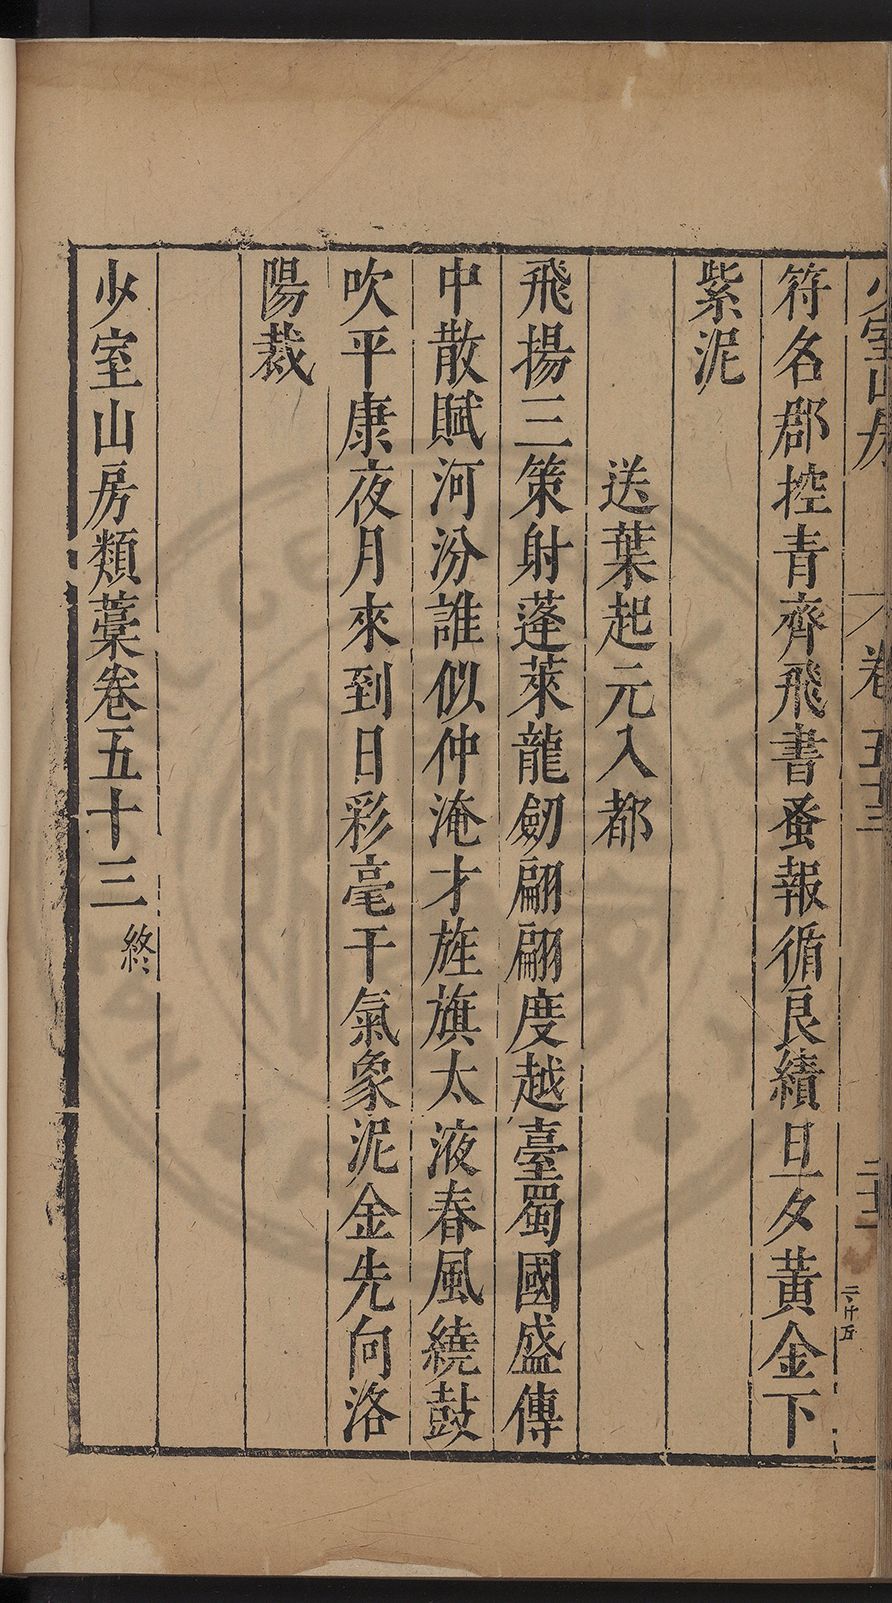 少室山房
卷五十三
二十二
符名郡控青齊飛書蚤報循良績旦夕黃金下
紫泥
送葉起元入都
飛揚三策射蓬萊龍劒翩翩度越臺蜀國盛傳
中散賦河汾誰似仲淹才旌旗太液春風繞鼓
吹平康夜月來到日彩毫干氣象泥金先向洛
陽裁
少室山房類藁卷五十三終